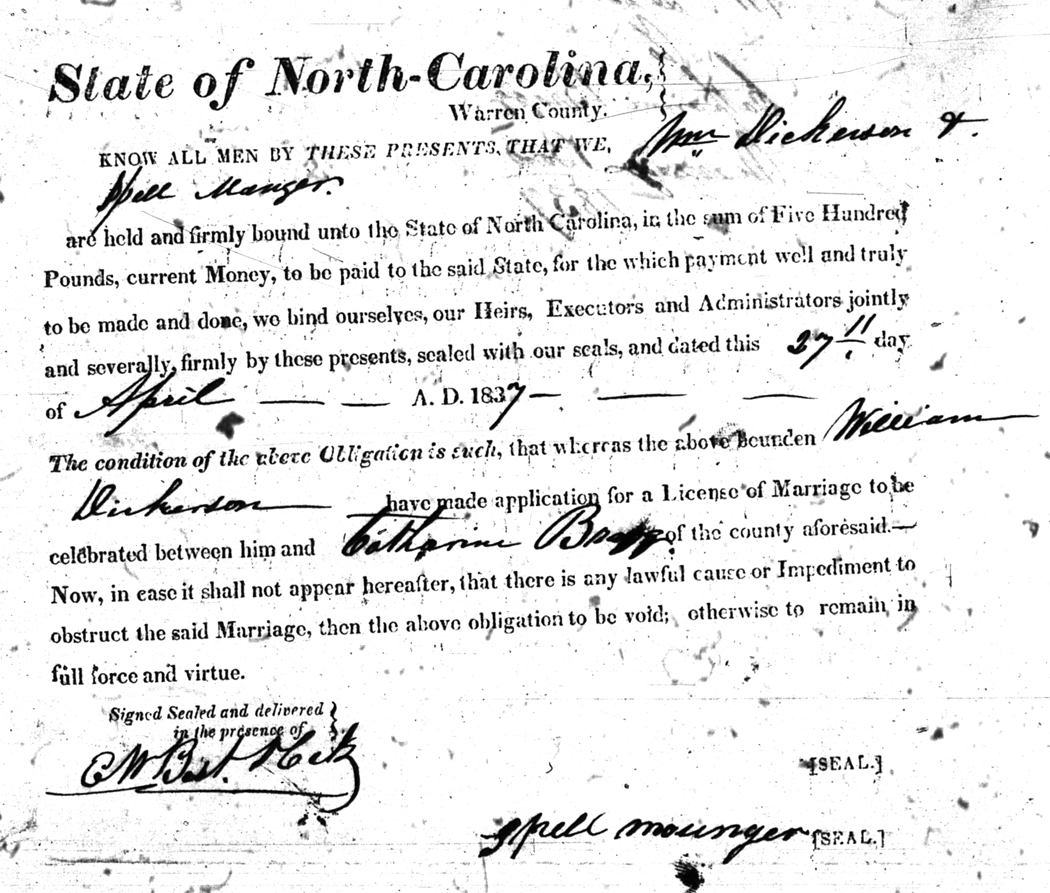 State of North-Carolina,
Warren County.
KNOW ALL MEN BY THESE PRESENTS, THAT WE, Wm Dickerson &
Spell Manger.
are held and firmly bound unto the State of North Carolina, in the sum of Five Hundred
Pounds, current Money, to be paid to the said State, for the which payment well and truly
to be made and done, we bind ourselves, our Heirs, Executors and Administrators jointly
and severally, firmly by these presents, sealed with our seals, and dated this 27 day
of April — — A. D. 1837 — — —
The condition of the above Obligation is such, that whereas the above bounden William
Dickerson have made application for a License of Marriage to be
celebrated between him and Catharine of the county aforesaid.—
Now, in case it shall not appear hereafter, that there is any lawful cause or Impediment to
obstruct the said Marriage, then the above obligation to be void; otherwise to remain in
full force and virtue.
Signed Sealed and delivered
in the presence of
[SEAL.]
Spell mounger [SEAL.]